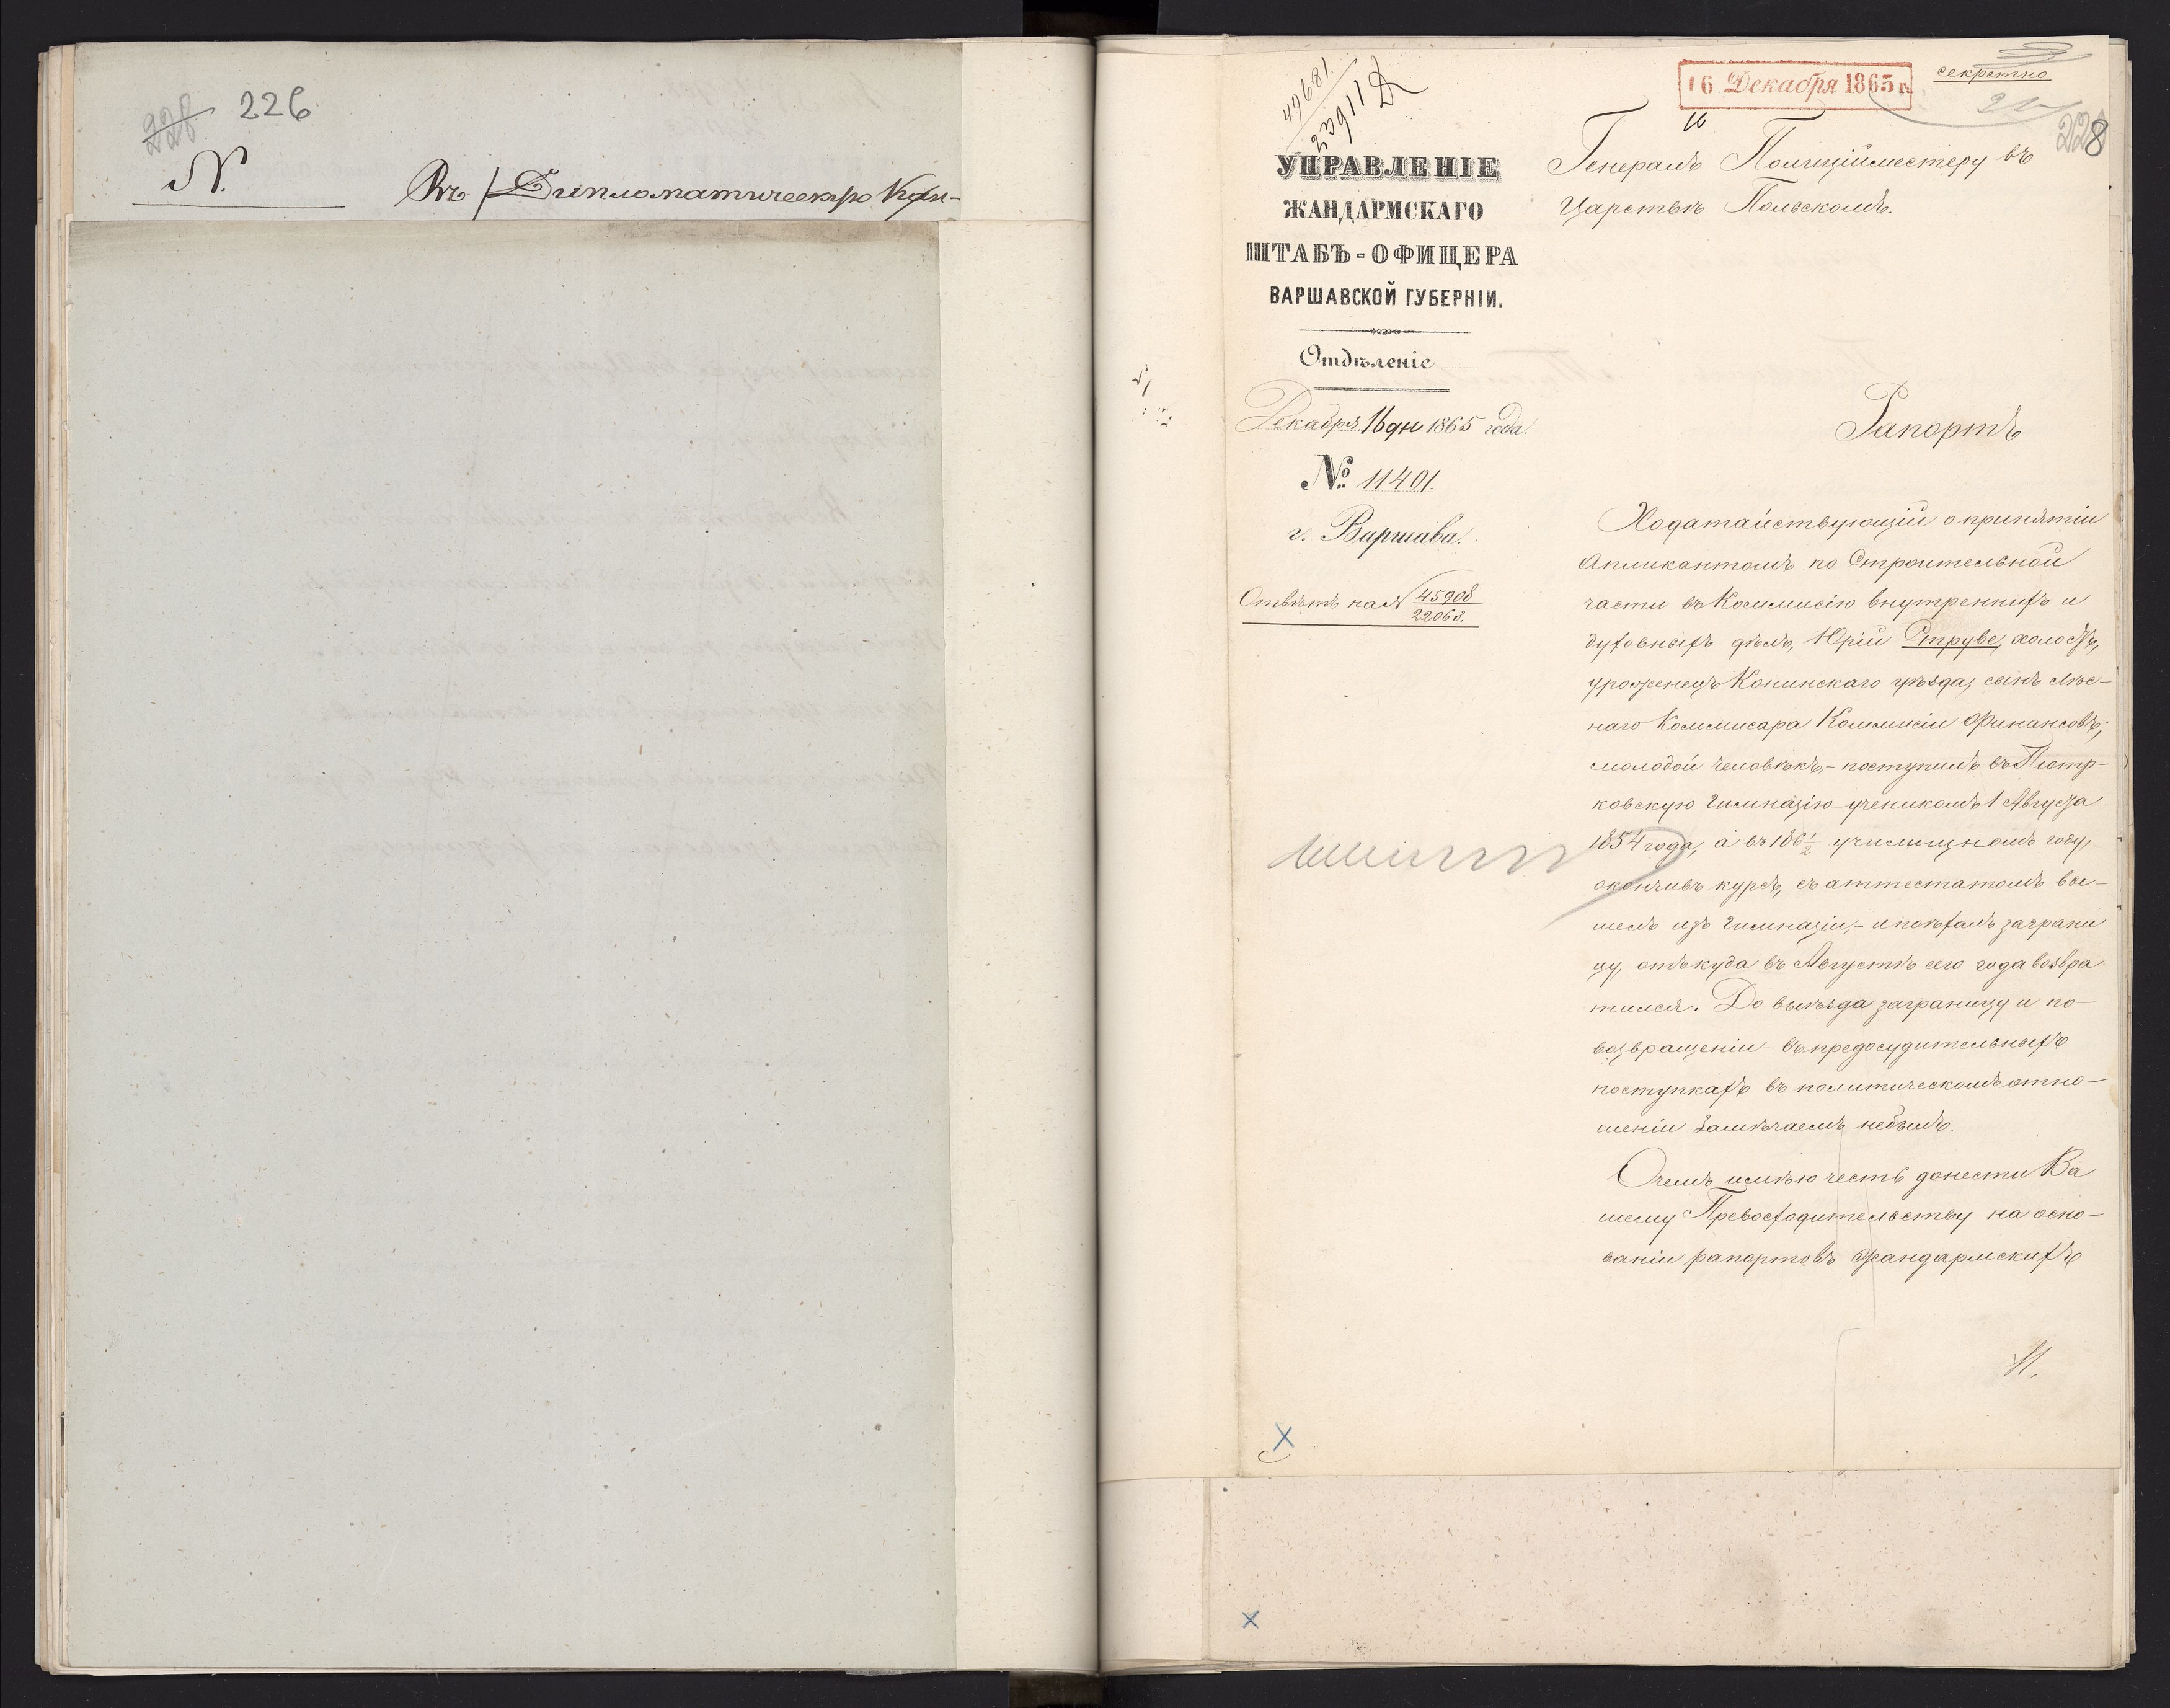 228 226
N.
Въ Дипломатическую Кан-
49681
23911 Д
16 Декабря 1865 г.
секретно
228
УПРАВЛЕНІЕ
ЖАНДАРМСКАГО
ШТАБЪ-ОФИЦЕРА
ВАРШАВСКОЙ ГУБЕРНІИ.
Отдѣленіе
Декабря 16 дн 1865 года.
№ 11401.
г. Варшава.
Отвѣтъ на № 45908
22063.
Генералъ Полиційместеру въ
Царствѣ Польскомъ.
Рапортъ
Ходатайствующій о принятіи
апликантомъ по Строительной
части въ Коммисію внутреннихъ и
духовныхъ дѣлъ, Юрій Струве, холостъ,
уроженецъ Конинскаго уѣзда, сынъ лѣс-
наго Коммисара Коммисіи Финансовъ;
молодой человѣкъ,- поступилъ въ Піотр-
ковскую гимназію ученикомъ 1 Августа
1854 года, а въ 186 1/2 училищномъ году,
окончивъ курсъ, съ аттестатомъ вы-
шелъ изъ гимназіи,- и поѣхалъ заграни
цу, отъкуда въ Августѣ сего года возвра
тился. До выѣзда заграницу и по-
возвращеніи - въ предосудительныхъ
поступкахъ въ политическомъ отно-
шеніи замѣчаемъ небылъ.
Очемъ имѣю честь донести Ва
шему Превосходительству на осно-
ваніи рапортовъ Жандармскихъ